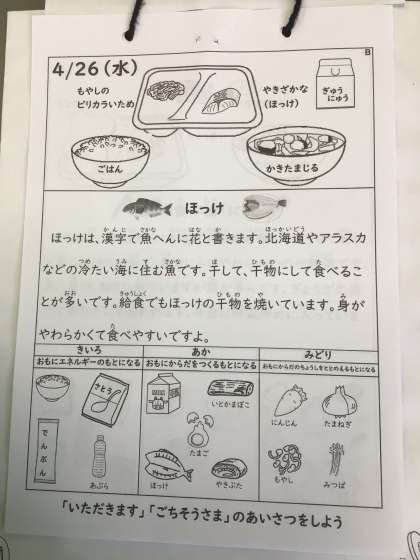 B
4/26(水)
もやしの
ピリカラいため
やきざかな
(ほっけ)
ぎゅう
にゅう
ごはん
かきたまじる
ほっけ
ほっけは、漢字で魚へんに花と書きます。北海道やアラスカ
などの冷たい海に住む魚です。干して、干物にして食べるこ
とが多いです。給食でもほっけの干物を焼いています。身が
やわらかくて食べやすいですよ。
きいろ
あか
みどり
おもにエネルギーのもとになる
おもにからだをつくるもとになる
おもにからだのちょうしをととのえるもとになる
さとう
でんぷん
あぶら
いとかまぼこ
たまご
ほっけ
やきぶた
にんじん
たまねぎ
もやし
みつば
「いただきます」「ごちそうさま」のあいさつをしよう